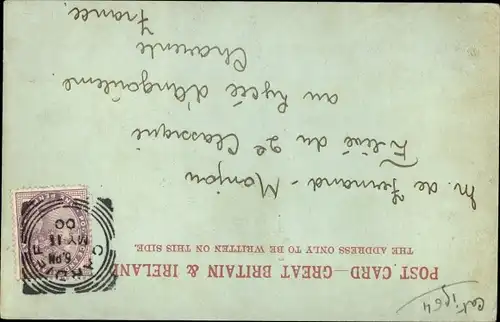 POST CARD—GREAT BRITAIN & IRELAND
THE ADDRESS ONLY TO BE WRITTEN ON THIS SIDE.
M. de Fernand-Monjou
Élève du 2e Classique
au Lycée d'Angoulême
Charente
France.
CARDIFF
6 PM
MY 13
00